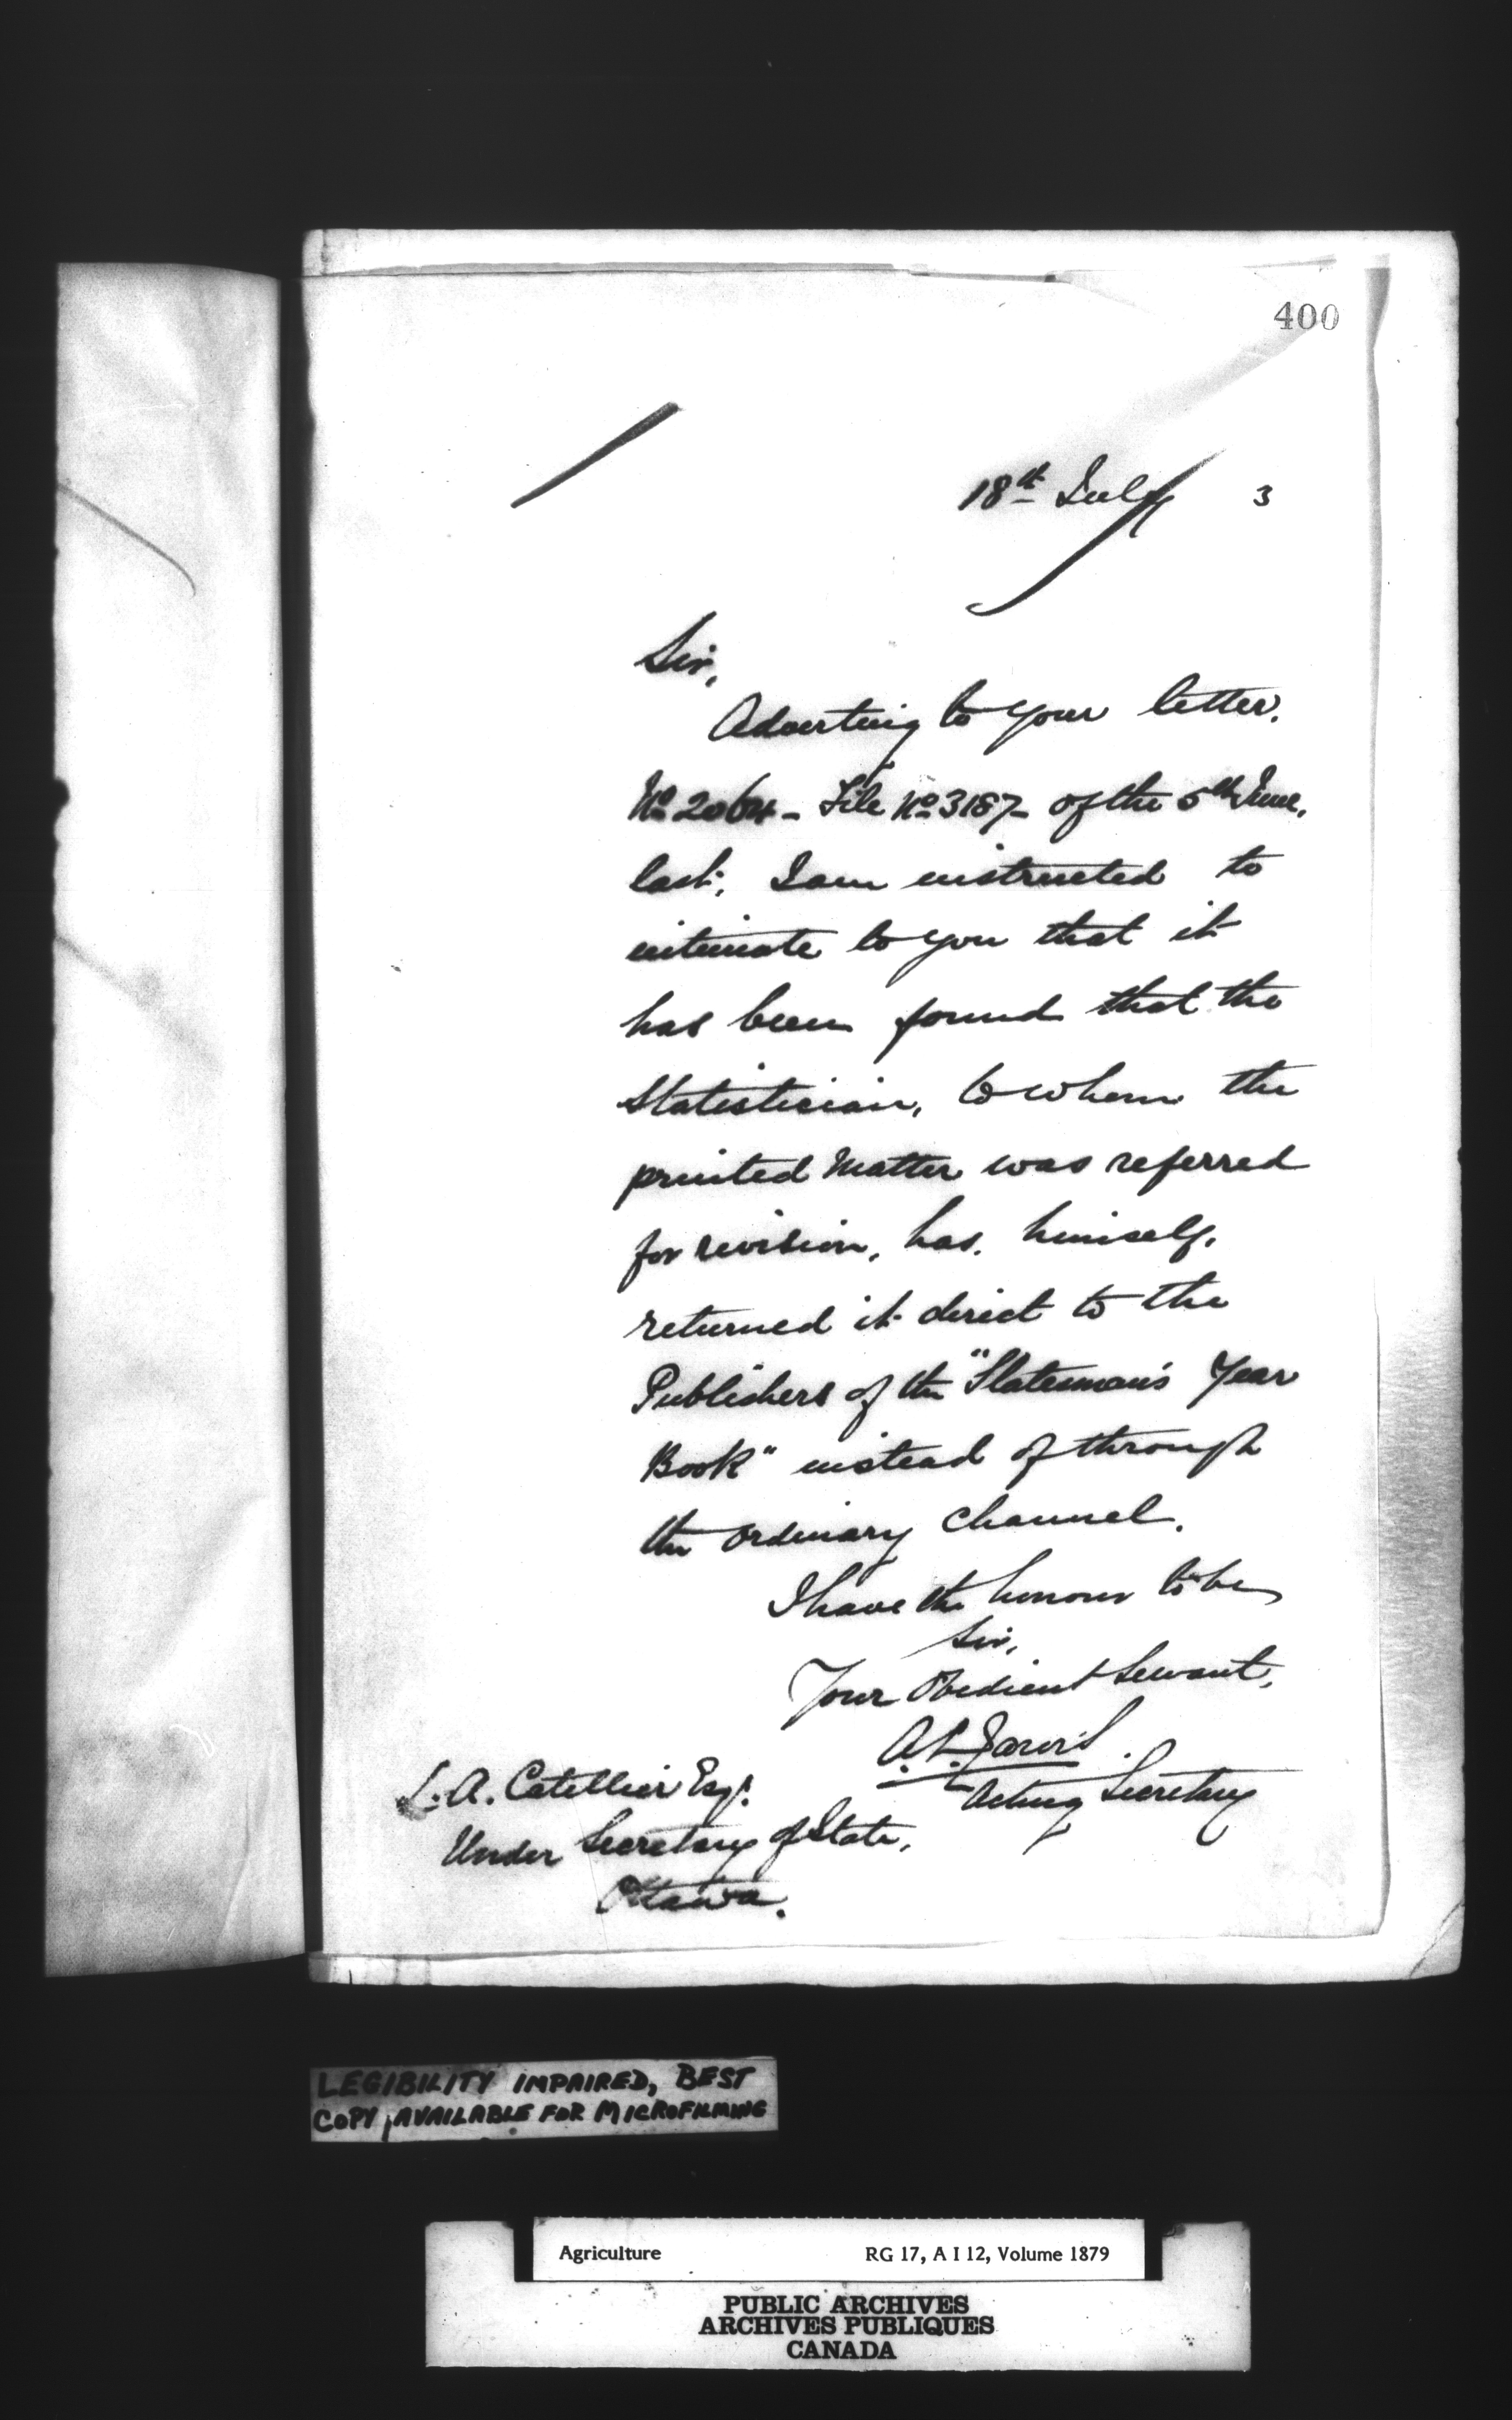 400
18th July 3
Sir,
Adverting to your letter.
No 2064 - File No 3187 - of the 5th June,
last, I am instructed to
intimate to you that it
has been found that the
Statistician, to whom the
printed Matter was referred
for revision, has, himself,
returned it direct to the
Publishers of the "Statesman's Year
Book" instead of through
the ordinary channel.
I have the honour to be
Sir,
Your Obedient Servant,
A. L. Jarvis.
Acting Secretary
L. A. Catellier Esqr.
Under Secretary of State,
Ottawa.
LEGIBILITY IMPAIRED, BEST
COPY AVAILABLE FOR MICROFILMING
Agriculture RG 17, A I 12, Volume 1879
PUBLIC ARCHIVES
ARCHIVES PUBLIQUES
CANADA